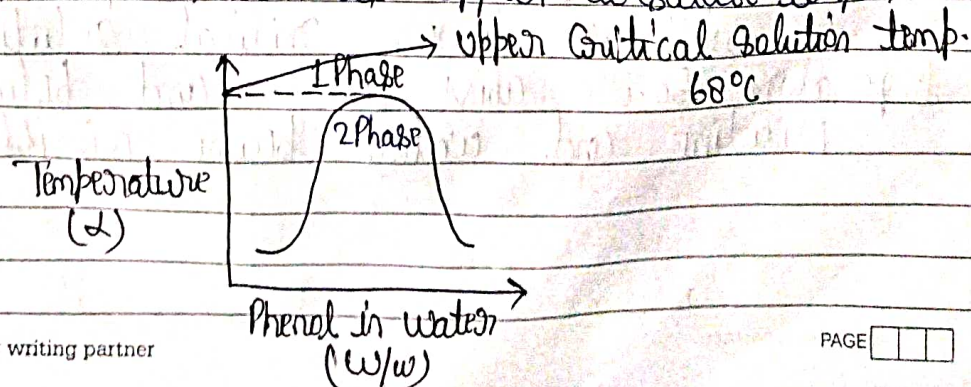 Upper Critical solution temp.
68°C
1 Phase
2 Phase
Temperature
(α)
Phenol in water
(W/w)
writing partner
PAGE